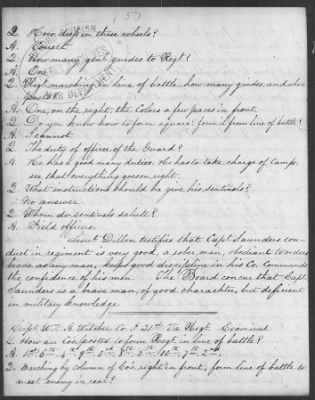 (5)
Q. How disp in these wheels?
A. Correct
Q. How many genl guides to Regt?
A. One
Q. Regt marching in line of battle, how many guides, and where posted?
A. One, on the right, the Colors a few paces in front.
Q. Do you know how to form square: form it from line of battle?
A. I cannot
Q. The duty of officer of the Guard?
A. He has a good many duties. He has to take charge of camp,
see that everything goes on right.
Q. What instructions should he give his sentinels?
No answer
Q. Whom do sentinels salute?
A. Field officers.
Lieut Dillon testifies that Capt Saunders con-
duct in regiment is very good, a sober man, obedient to orders
brave as any man, keeps good discipline in his Co. Commands
the confidence of his men. The Board concur that Capt
Saunders is a brave man, of good character, but deficient
in military knowledge.
Capt Wm. A. Witcher Co. I 21st Va. Regt. Examined
How are Cos. posted to form Regt. in line of battle?
A. 1st. 6th. 4th. 9th. 3rd. 8th. 5th. 10th. 7th. 2nd.
Q. Marching by column of Cos. right in front, form line of battle to
meet enemy in rear?